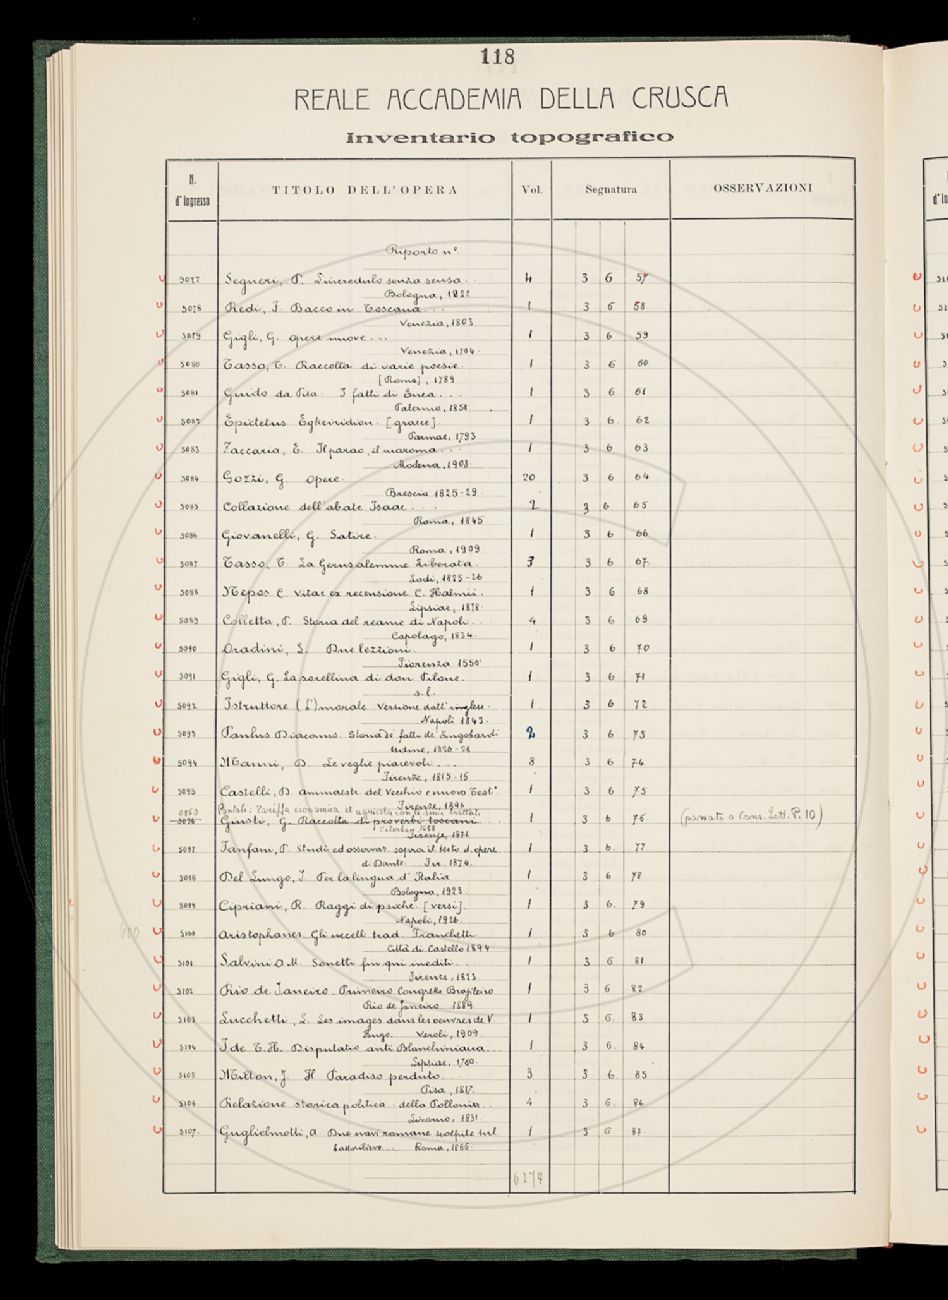 118
REALE ACCADEMIA DELLA CRUSCA
Inventario topografico
N. d'Ingresso TITOLO DELL'OPERA Vol. Segnatura OSSERVAZIONI
Riporto n°
5077 Segneri, P. L'incredulo senza scusa... 4 3 6 57
Bologna, 1821
5078 Redi, F. Bacco in Toscana... 1 3 6 58
Venezia, 1803
5079 Gigli, G. opere nuove... 1 3 6 59
Venezia, 1704.
5080 Tasso, T. Raccolta di varie poesie. 1 3 6 60
[Roma], 1789
5081 Guido da Pisa. I fatti di Enea... 1 3 6 61
Palermo, 1858
5082 Epictetus. Egkeiridion. [graece]. 1 3 6. 62
Parmae, 1793
5083 Zaccaria, E. Il marama... 1 3 6 63
Modena, 1908
5084 Gozzi, G opere. 20 3 6 64
Brescia 1825-29.
5085 Collazione dell'abate Isaac... 2 3 6 65
Roma, 1845
5086 Giovanelli, G. Satire. 1 3 6 66
Roma, 1909
5087 Tasso, T. La Gerusalemme Liberata. 3 3 6 67.
Lodi, 1825-26
5088 Nepos C. Vitae ex recensione C. Halmii. 1 3 6 68
Lipsiae, 1878.
5089 Colletta, P. Storia del reame di Napoli.. 4 3 6 69
Capolago, 1834.
5090 Oradini, L. Due lezzioni. 1 3 6 70
Fiorenza 1550
5091 Gigli, G. La sorellina di don Pilone. 1 3 6 71
s.l.
5092 Istruttore (L') morale Versione dall'inglese. 1 3 6 72
Napoli 1843.
5093 Paulus Diaconus. Storia di fatti de' Longobardi 2 3 6 73
Udine, 1826-28
5094 Manni, D. Le veglie piacevoli... 8 3 6 74
Firenze, 1815-16
5095 Castelli, D. ammaestr. del Vecchio e nuovo Test° 1 3 6 75
Firenze, 1896
Tariffa economica et con le suoi trattati
5096 Giusti, G. Raccolta di proverbi toscani... 1 3 6 76 (passato a Cons. Lett. P. 10)
Viterbo 1688
Firenze, 1871
5097 Fanfani, P. Studi ed osservaz. sopra il testo d. opere 1 3 6. 77
di Dante. Fir. 1874.
5098 Del Lungo, I. Per la lingua d'Italia 1 3 6 78
Bologna, 1923.
5099 Cipriani, R. Raggi di psiche. [versi]. 1 3 6. 79
Napoli, 1926.
5100 Aristophanes. Gli uccelli trad. Franchetti. 1 3 6 80
Città di Castello 1894
5101 Salvini A.M. Sonetti fin qui inediti... 1 3 6 81
Firenze, 1823
5102 Rio de Janeiro. Primeiro Congresso Brazileiro 1 3 6 82
Rio de Janeiro 1889
5103 Lucchetti, L. Les images dans les oeuvres de V. 1 3 6. 83
Hugo. Veroli, 1909
5104 Ide T.H. Disputatio anti Blanchiniana... 1 3 6. 84
Lipsiae, 1760.
5105 Milton, J. Il Paradiso perduto... 3 3 6. 85
Pisa, 1817.
5106 Relazione storica politica della Pollonia.. 4 3 6. 86
Livorno, 1831.
5107. Guglielmotti, A. Due navi romane scolpite sul 1 3 6. 87
bassorilievo... Roma, 1866
6274